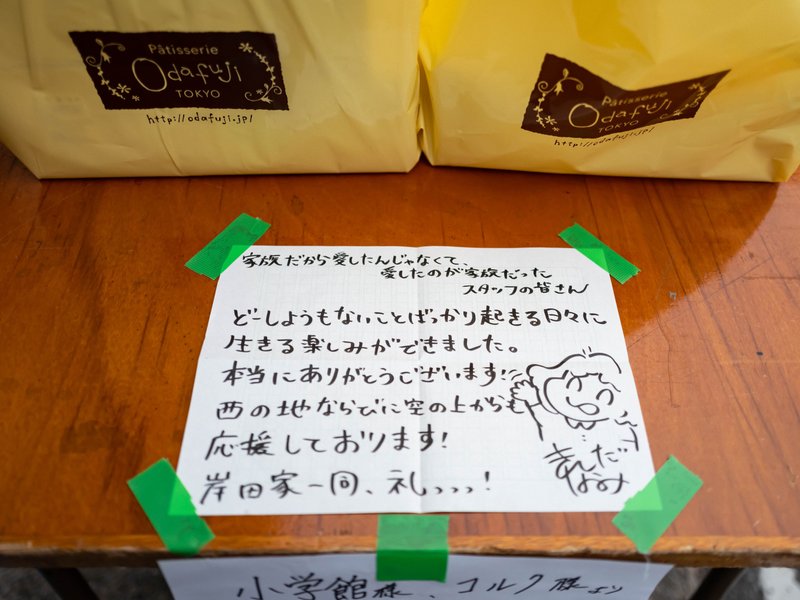 Pâtisserie
Odafuji
TOKYO
http://odafuji.jp/
Pâtisserie
Odafuji
TOKYO
http://odafuji.jp/
家族だから愛したんじゃなくて、
愛したのが家族だった
スタッフの皆さん
どーしようもないことばっかり起きる日々に
生きる楽しみができました。
本当にありがとうございます!!
西の地ならびに空の上からも
応援しております!
岸田家一同、礼っっっ!
きしだ
なみ
小学館様、コルク様より